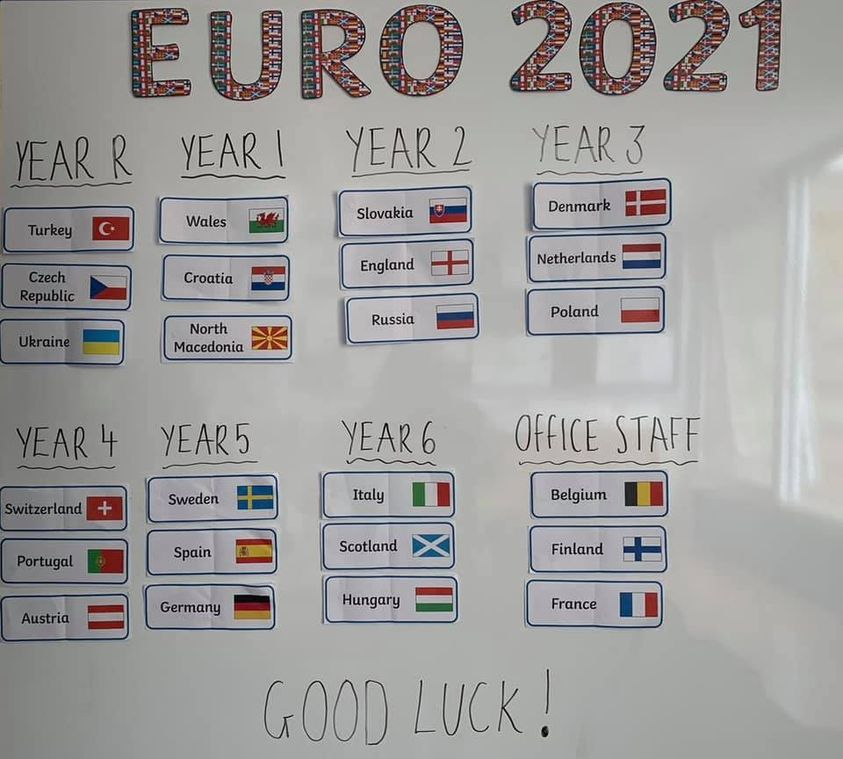 EURO 2021
YEAR R
Turkey
Czech
Republic
Ukraine
YEAR 1
Wales
Croatia
North
Macedonia
YEAR 2
Slovakia
England
Russia
YEAR 3
Denmark
Netherlands
Poland
YEAR 4
Switzerland
Portugal
Austria
YEAR 5
Sweden
Spain
Germany
YEAR 6
Italy
Scotland
Hungary
OFFICE STAFF
Belgium
Finland
France
GOOD LUCK!